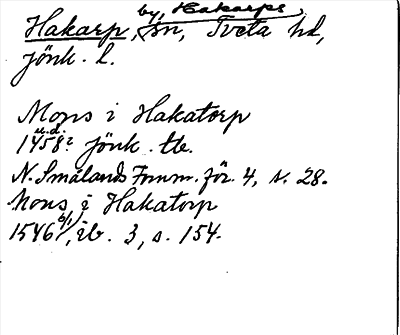 Hakarp, by, Hakarps sn, Tveta hd,
Jönk. l.
Mons i Hakatorp
1458? u.d. Jönk. tb.
N. Smålands Fornm. för. 4, s. 28.
Mons i Hakatorp
1546 6/1, ib. 3, s. 154.